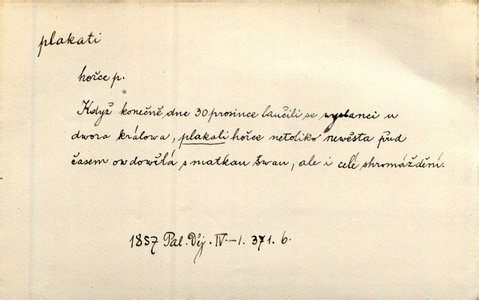 plakati
hořce p.
Když konečně dne 30 prosince laučili se vyslanci u
dvora králova, plakali hořce netoliko nevěsta před
časem ovdovělá s matkau svau, ale i celé shromáždění.
1857 Pal. Děj. IV.–1. 371. b.